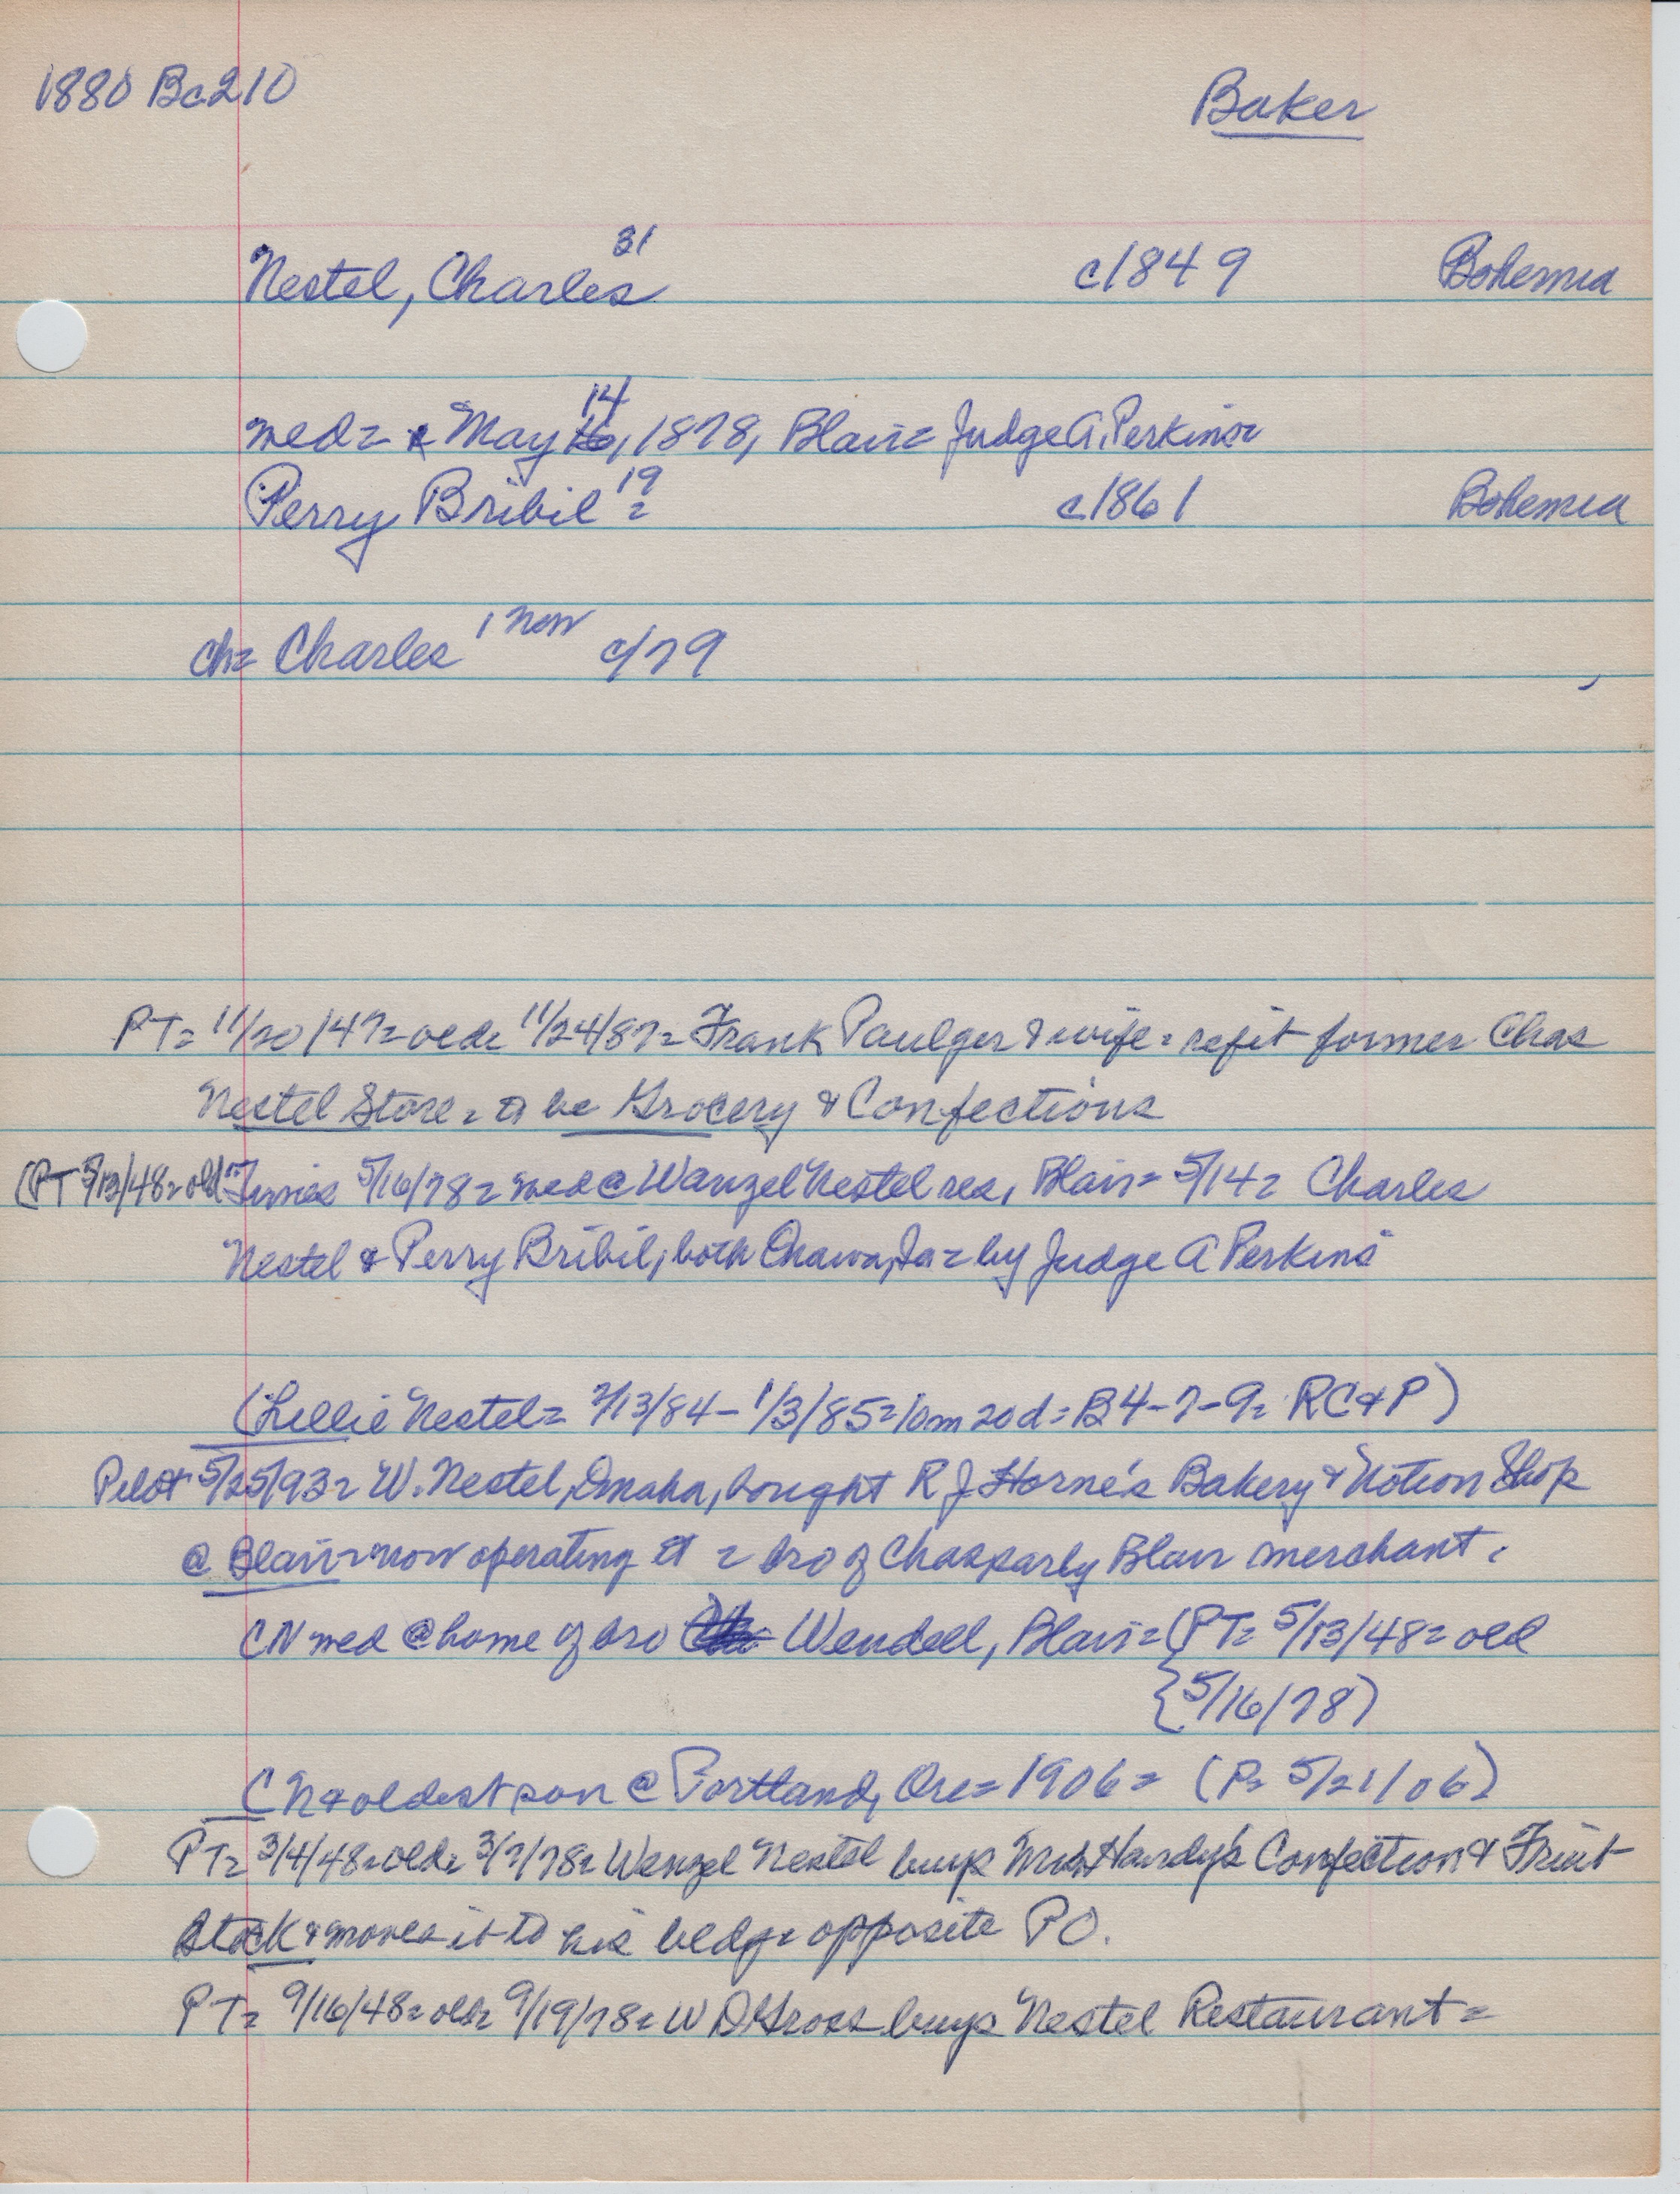 1880 Bc210
Baker
Nestel, Charles 31 c1849 Bohemia
med= May 14, 1878, Blair= Judge A. Perkins=
Perry Bribil 19= c1861 Bohemia
ch= Charles 1 Nov c/79
PT= 11/20/47= old= 11/24/87= Frank Paulger & wife= refit former Chas
Nestel Store= to be Grocery & Confections
(PT 5/13/48= old Times 5/16/78= med @ Wanzel Nestel res, Blair= 5/14= Charles
Nestel & Perry Bribil, both Onawa, Ia= by Judge A Perkins
(Lillie Nestel= 2/13/84-1/3/85=10m 20d= B4-7-9= RC&P)
Pilot 5/25/93= W. Nestel, Omaha, bought R J Horne's Bakery & Notion Shop
@ Blair= now operating it = bro of Chas, early Blair merchant.
CN med @ home of bro Wendell, Blair= (PT= 5/13/48= old
{5/16/78)
CN & oldest son @ Portland, Ore= 1906= (P= 5/21/06)
PT= 3/4/48= old= 3/7/78= Wenzel Nestel buys Mrs Handy's Confection & Fruit
Stock & moves it to his bldg= opposite PO.
PT= 9/16/48= old= 9/19/78= W D Gross buys Nestel Restaurant=